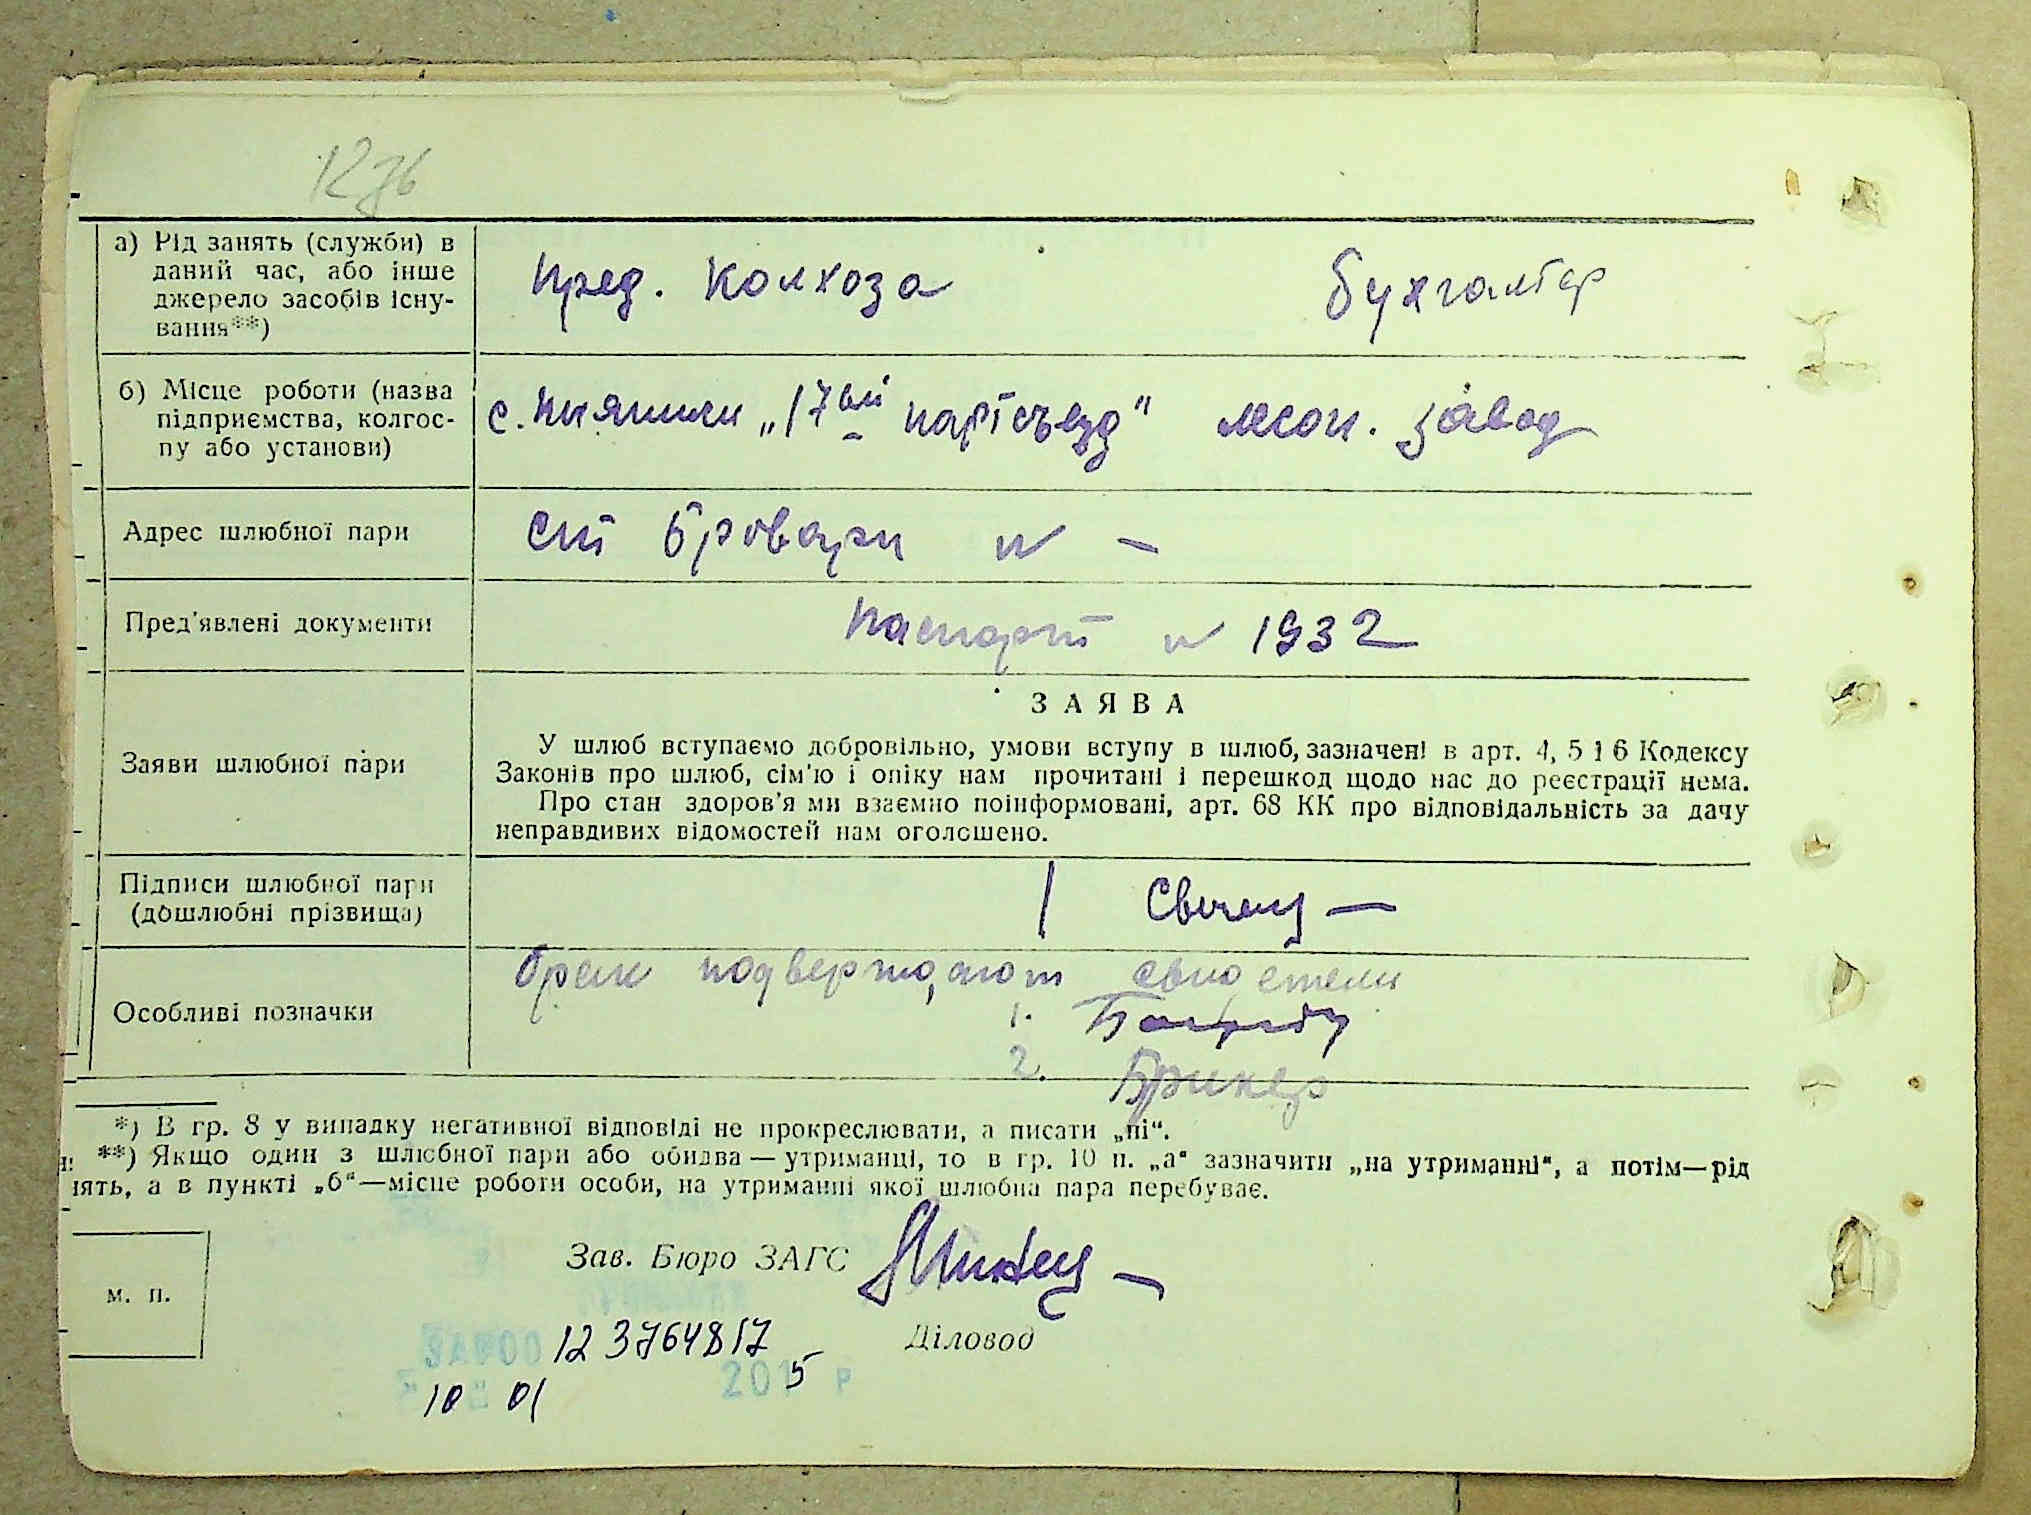 1276
а) Рід занять (служби) в
даний час, або інше
джерело засобів існу-
вання**)
пред. колхоза бухгалтер
б) Місце роботи (назва
підприємства, колгос-
пу або установи)
с. "17ый партсъезд" завод
Адрес шлюбної пари
ст Бровари № —
Пред'явлені документи
паспорт № 1932
Заяви шлюбної пари
ЗАЯВА
У шлюб вступаємо добровільно, умови вступу в шлюб, зазначені в арт. 4, 5 і 6 Кодексу
Законів про шлюб, сім'ю і опіку нам прочитані і перешкод щодо нас до реєстрації нема.
Про стан здоров'я ми взаємно поінформовані, арт. 68 КК про відповідальність за дачу
неправдивих відомостей нам оголошено.
Підписи шлюбної пари
(дошлюбні прізвища)
Особливі позначки
брак подверждают свидетели
1.
2. Брикер
*) В гр. 8 у випадку негативної відповіді не прокреслювати, а писати „ні“.
**) Якщо один з шлюбної пари або обидва — утриманці, то в гр. 10 п. „а“ зазначити „на утриманні“, а потім—рід
нять, а в пункті „б“—місце роботи особи, на утриманні якої шлюбна пара перебуває.
Зав. Бюро ЗАГС
м. п.
Діловод
12 3764817
10 01 2015 р